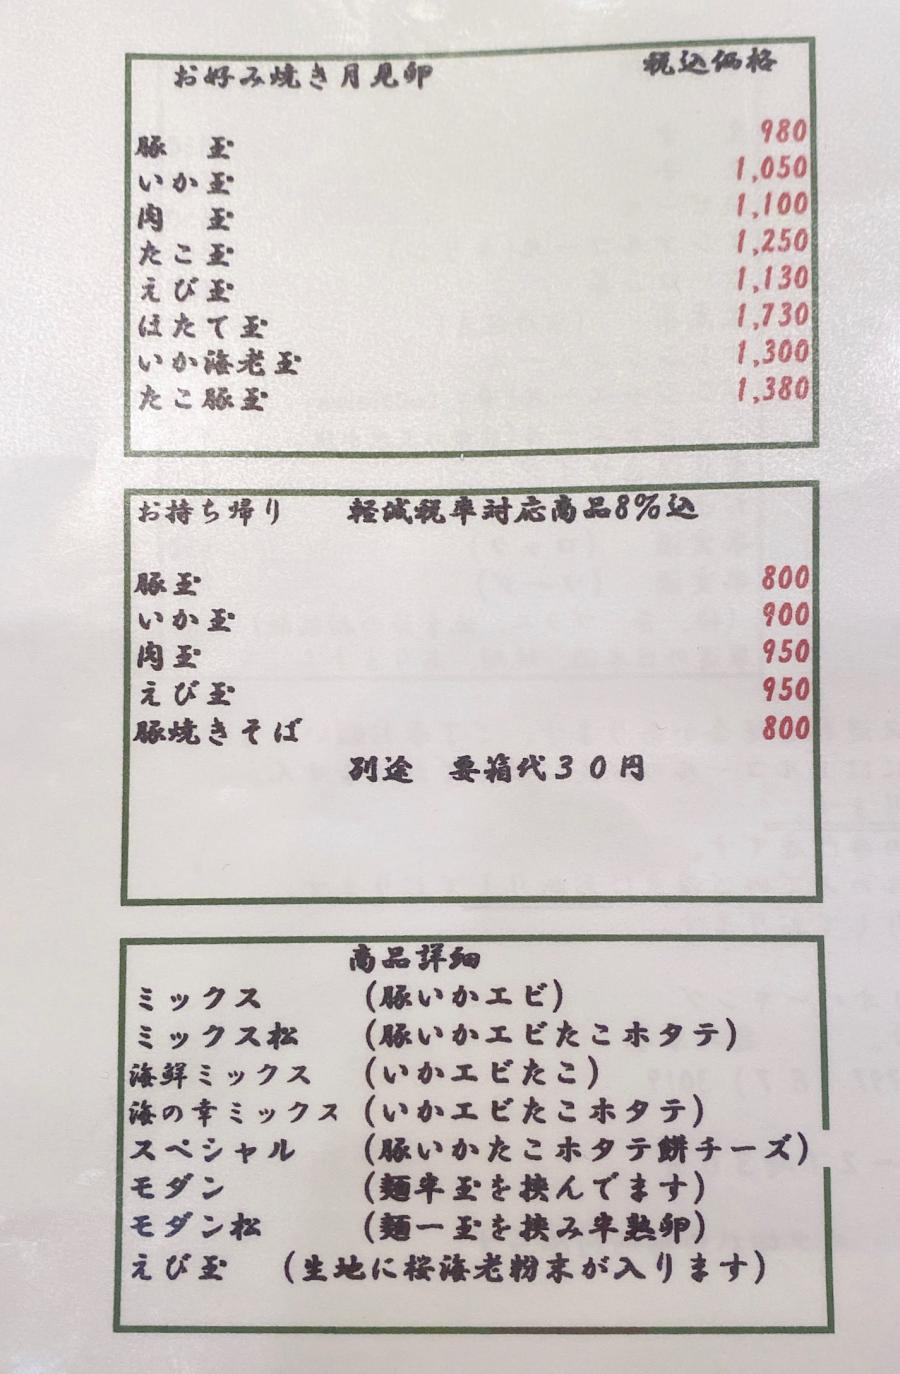 お好み焼き月見卵 税込価格
豚 玉 980
いか玉 1,050
肉 玉 1,100
たこ玉 1,250
えび玉 1,130
ほたて玉 1,730
いか海老玉 1,300
たこ豚玉 1,380
お持ち帰り 軽減税率対応商品8%込
豚玉 800
いか玉 900
肉玉 950
えび玉 950
豚焼きそば 800
別途 要箱代30円
商品詳細
ミックス (豚いかエビ)
ミックス松 (豚いかエビたこホタテ)
海鮮ミックス (いかエビたこ)
海の幸ミックス (いかエビたこホタテ)
スペシャル (豚いかたこホタテ餅チーズ)
モダン (麺半玉を挟んでます)
モダン松 (麺一玉を挟み半熟卵)
えび玉 (生地に桜海老粉末が入ります)